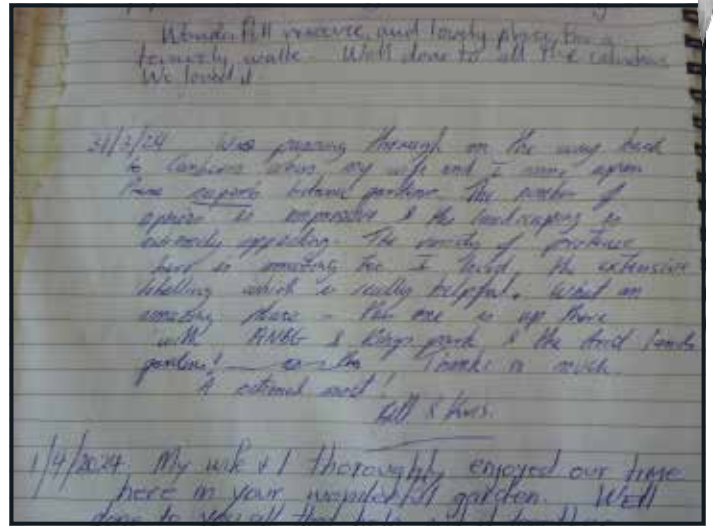 Wonderfull reserve, and lovely place for a
leisurely walk. Well done to all the
We loved it.
31/3/24 Was passing through on the way back
to Canberra when my wife and I came upon
these superb botanic gardens. The number of
species is impressive & the landscaping is
extremely appealing. The variety of proteaceae
here is amazing too. I loved the extensive
labelling which is really helpful. What an
amazing place - this one is up there
with ANBG & Kings park & the Arid lands
gardens! Thanks so much.
A national asset!
& Kris.
1/4/2024 My wife & I thoroughly enjoyed our time
here in your wonderful garden. Well
done to you all that help